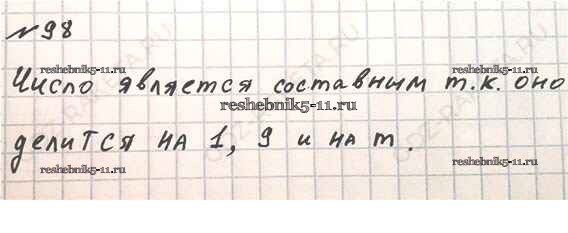 №98
reshebnik5-11.ru
Число является составным т.к. оно
reshebnik5-11.ru
reshebnik5-11.ru
reshebnik5-11.ru
делится на 1, 9 и на m.
reshebnik5-11.ru
reshebnik5-11.ru